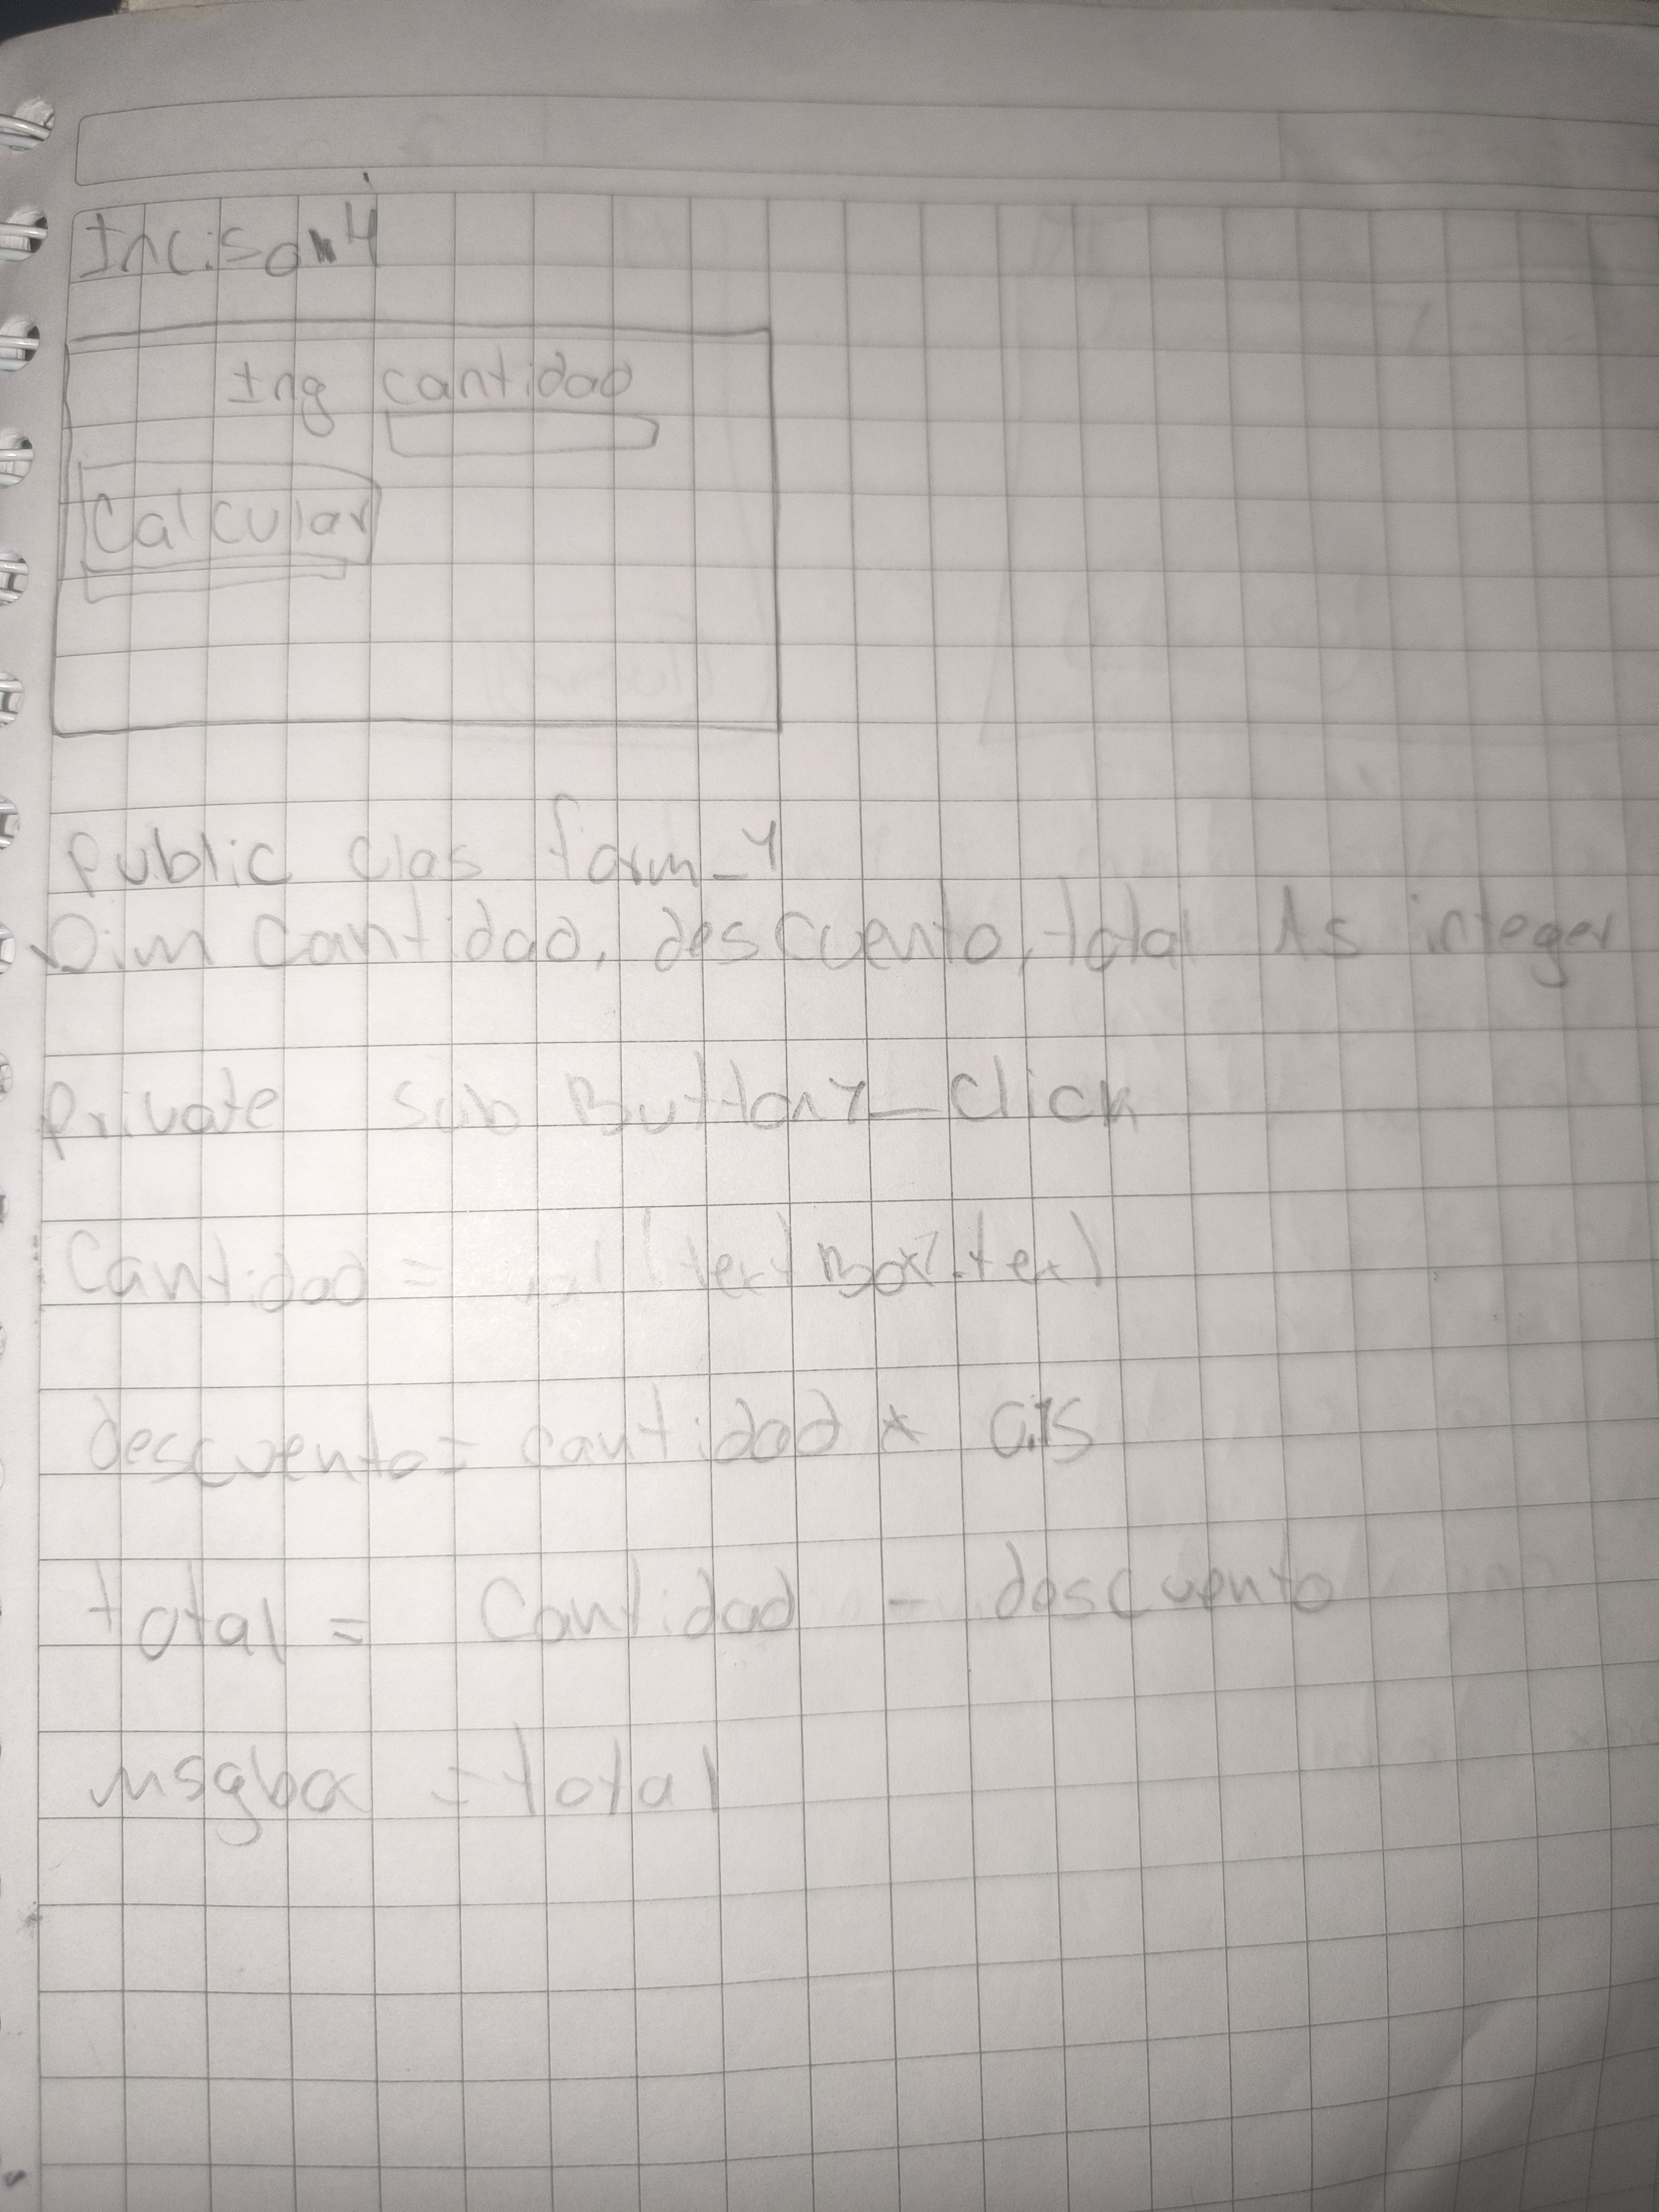 Inciso 4
Ing cantidad
Calcular
Public clas form_1
Dim Cantidad, descuento, total As integer
Private Sub Button1_Click
Cantidad = val (textBox1.text)
descuento = cantidad * 0.15
total = Cantidad - descuento
msgbox = total